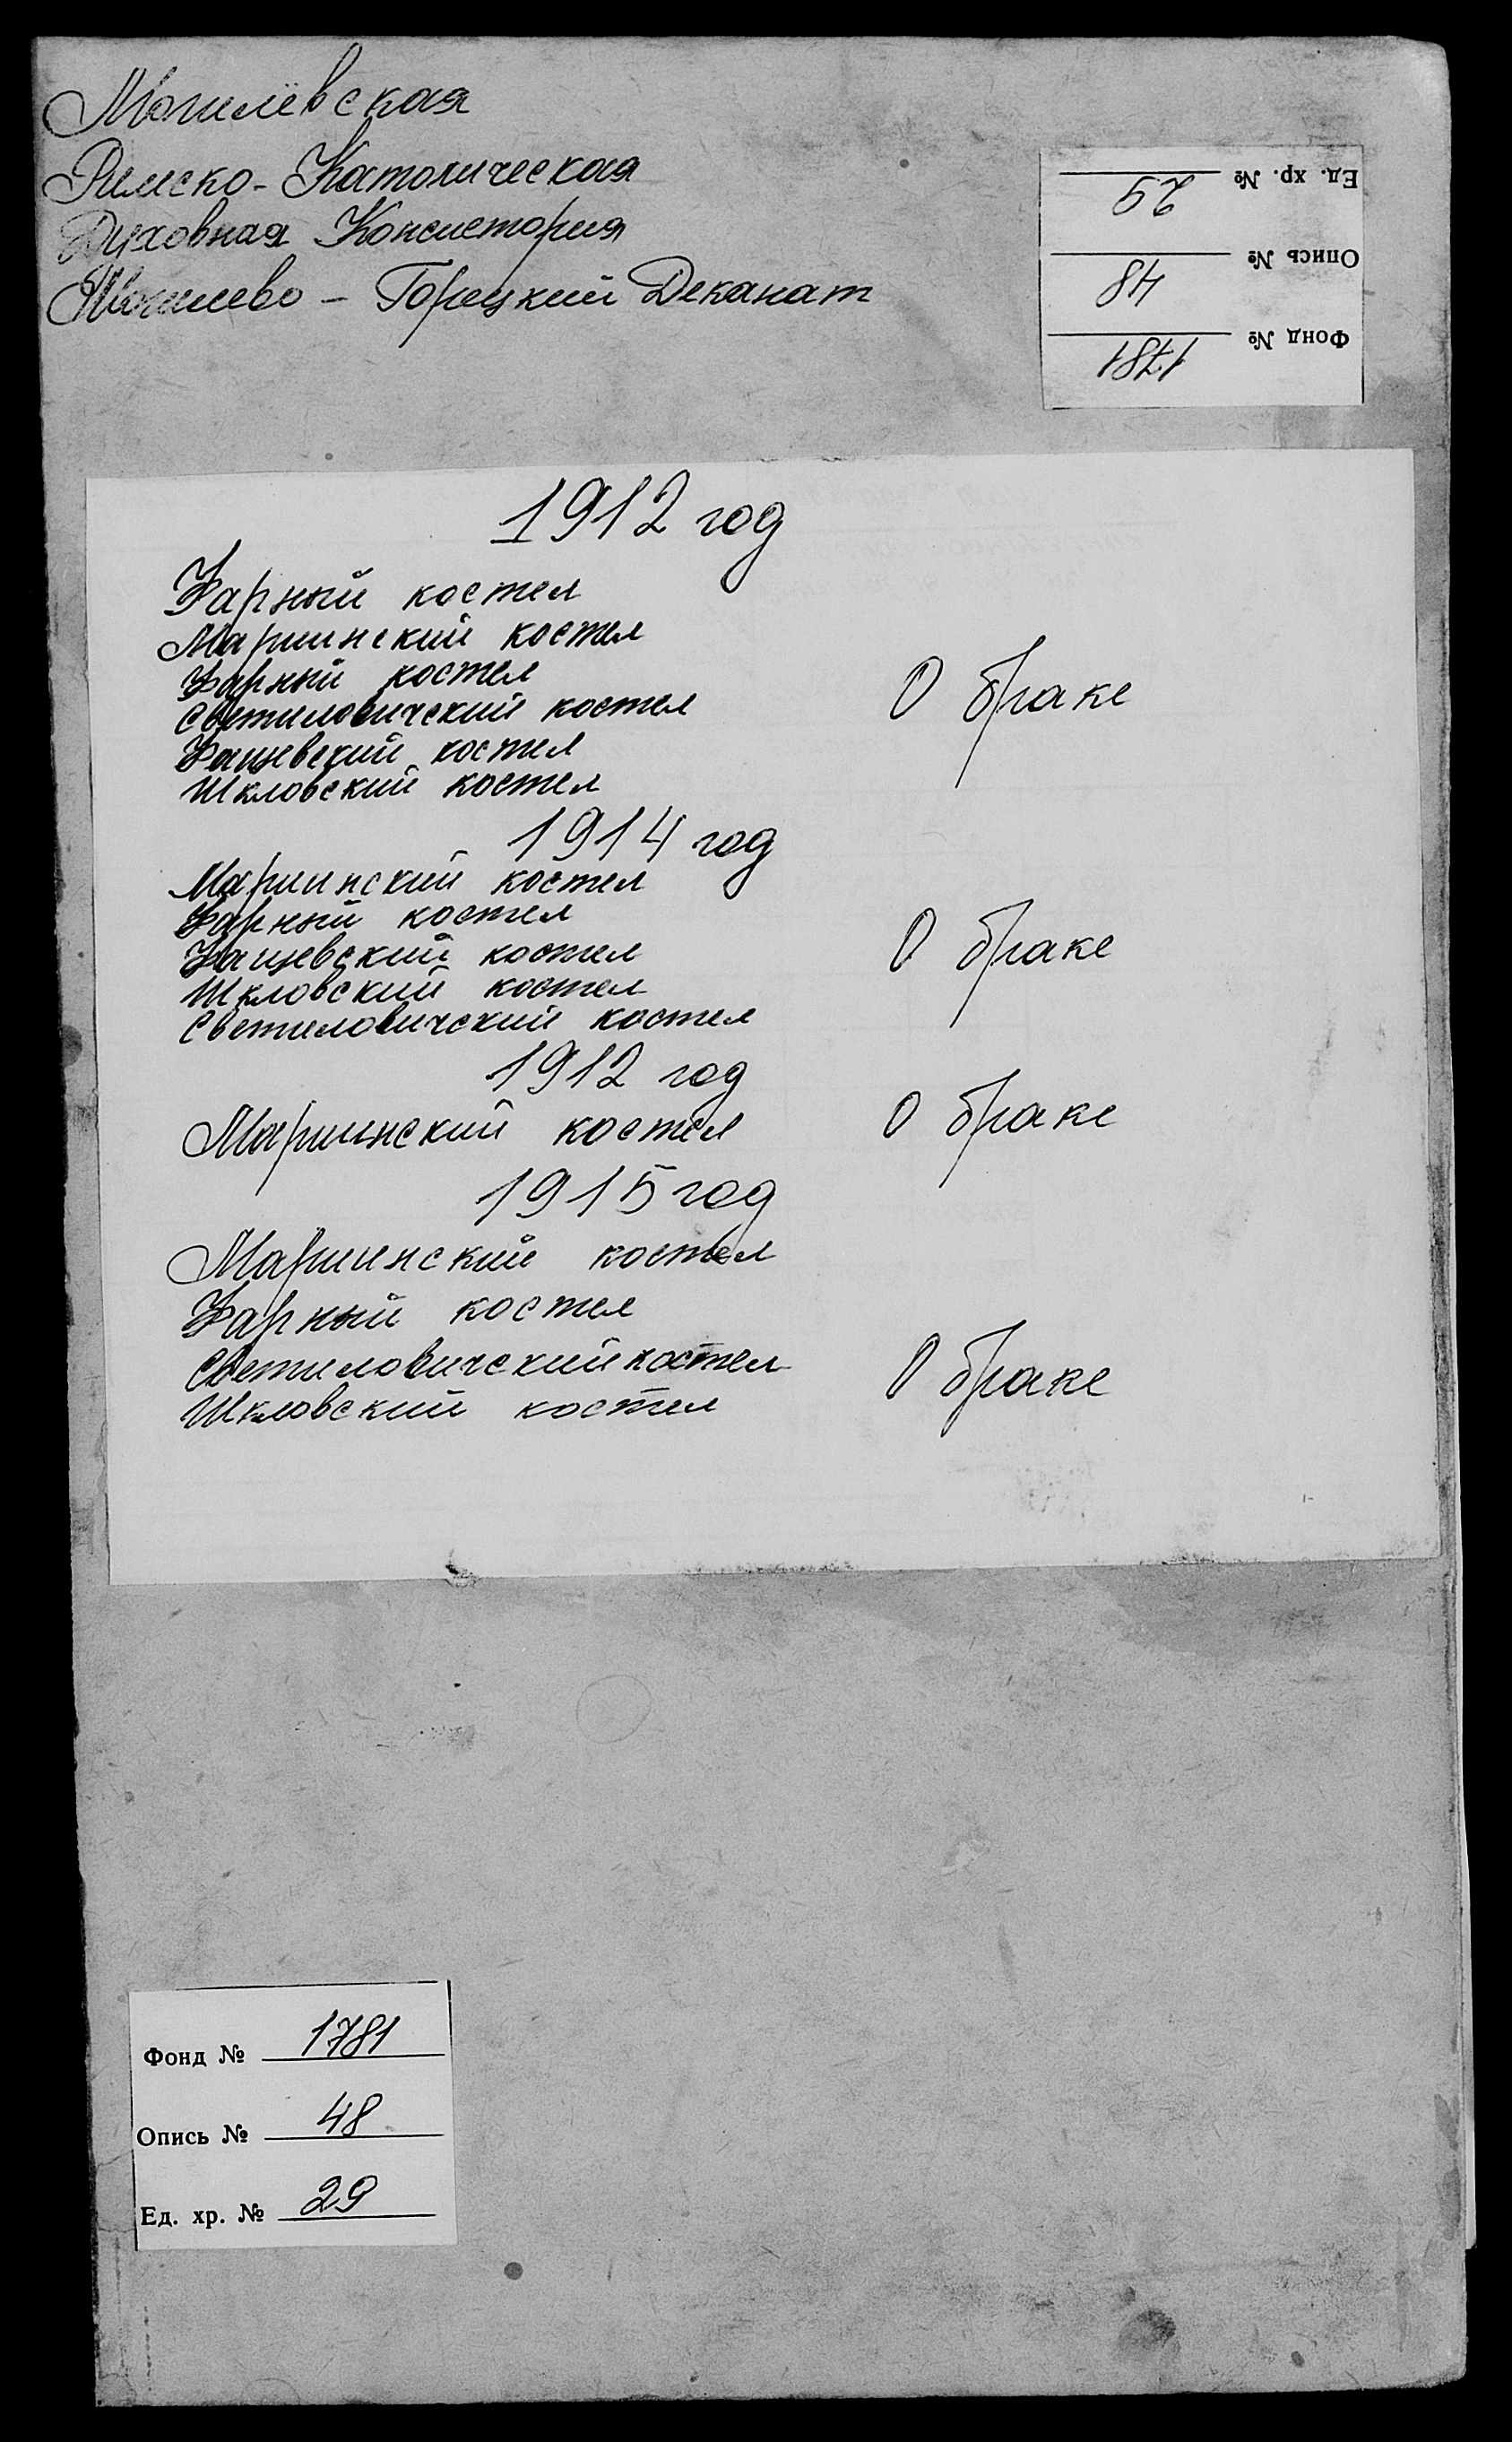 Могилёвская
Римско-Католическая
Духовная Консистория
Могилево - Горецкий Деканат
Ед. хр. № 29
Опись № 48
Фонд № 1781
1912 год
Фарный костел
Мариинский костел
Фарный костел
Светиловичский костел
Фащевский костел
Шкловский костел
О браке
1914 год
Мариинский костел
Фарный костел
Фащевский костел
Шкловский костел
Светиловичский костел
О браке
1912 год
Мариинский костел О браке
1915 год
Мариинский костел
Фарный костел
Светиловичский костел
Шкловский костел
О браке
Фонд № 1781
Опись № 48
Ед. хр. № 29